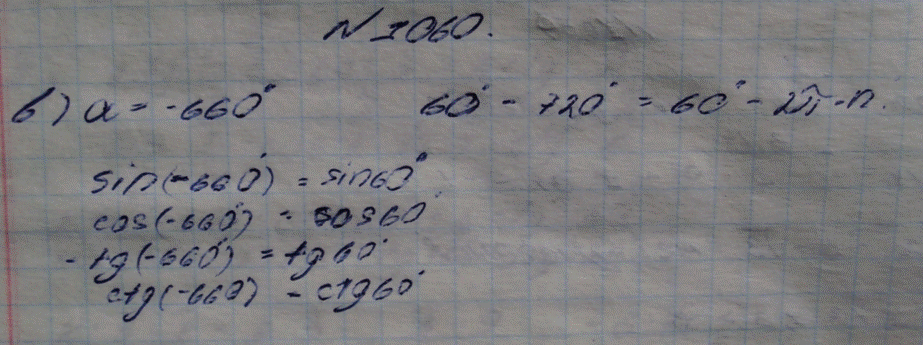 N 1060.
в) α = -660° 60° - 720° = 60° - 2π·n.
sin(-660°) = sin60°
cos(-660°) = cos60°
- tg(-660°) = tg60°
ctg(-660°) - ctg60°